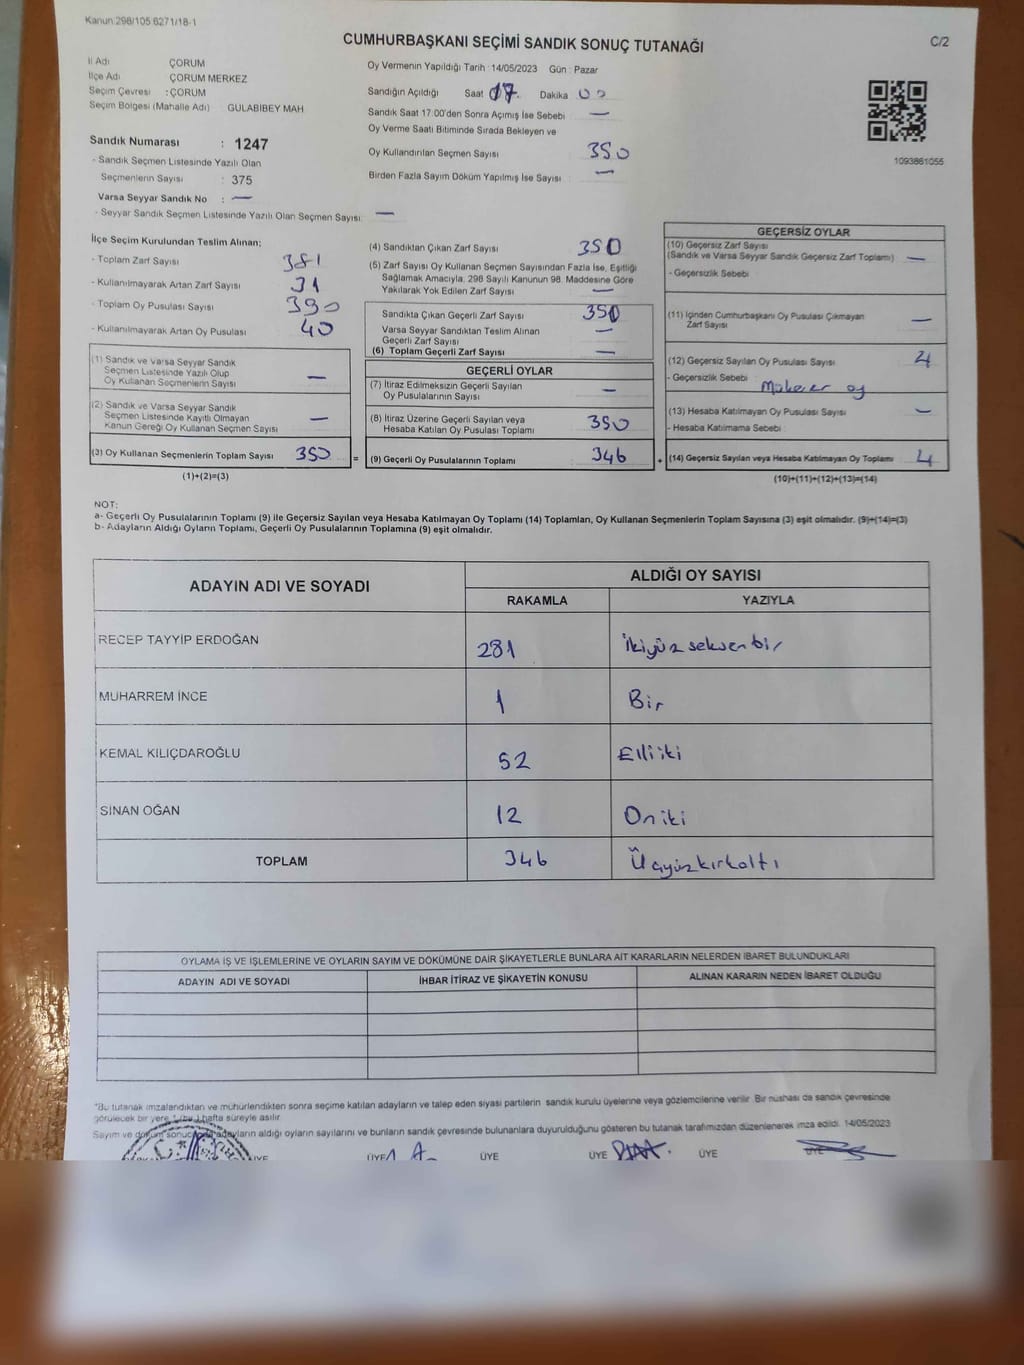 Kanun 298/105 6271/18-1
CUMHURBAŞKANI SEÇİMİ SANDIK SONUÇ TUTANAĞI
C/2
İl Adı ÇORUM
İlçe Adı ÇORUM MERKEZ
Seçim Çevresi : ÇORUM
Seçim Bölgesi (Mahalle Adı) GULABİBEY MAH
Sandık Numarası : 1247
- Sandık Seçmen Listesinde Yazılı Olan
Seçmenlerin Sayısı : 375
Varsa Seyyar Sandık No : —
- Seyyar Sandık Seçmen Listesinde Yazılı Olan Seçmen Sayısı: —
Oy Vermenin Yapıldığı Tarih : 14/05/2023 Gün : Pazar
Sandığın Açıldığı Saat 17. Dakika 00
Sandık Saat 17:00'den Sonra Açımış İse Sebebi : —
Oy Verme Saati Bitiminde Sırada Bekleyen ve
Oy Kullandırılan Seçmen Sayısı : 350
Birden Fazla Sayım Döküm Yapılmış İse Sayısı : —
1093861055
İlçe Seçim Kurulundan Teslim Alınan;
- Toplam Zarf Sayısı : 381
- Kullanılmayarak Artan Zarf Sayısı : 31
- Toplam Oy Pusulası Sayısı : 390
- Kullanılmayarak Artan Oy Pusulası : 40
(1) Sandık ve Varsa Seyyar Sandık
Seçmen Listesinde Yazılı Olup
Oy Kullanan Seçmenlerin Sayısı : —
(2) Sandık ve Varsa Seyyar Sandık
Seçmen Listesinde Kayıtlı Olmayan
Kanun Gereği Oy Kullanan Seçmen Sayısı : —
(3) Oy Kullanan Seçmenlerin Toplam Sayısı 350 =
(1)+(2)=(3)
(4) Sandıktan Çıkan Zarf Sayısı : 350
(5) Zarf Sayısı Oy Kullanan Seçmen Sayısından Fazla İse, Eşitliği
Sağlamak Amacıyla, 298 Sayılı Kanunun 98. Maddesine Göre
Yakılarak Yok Edilen Zarf Sayısı : —
Sandıkta Çıkan Geçerli Zarf Sayısı : 350
Varsa Seyyar Sandıktan Teslim Alınan
Geçerli Zarf Sayısı : —
(6) Toplam Geçerli Zarf Sayısı : —
GEÇERLİ OYLAR
(7) İtiraz Edilmeksizin Geçerli Sayılan
Oy Pusulalarının Sayısı : —
(8) İtiraz Üzerine Geçerli Sayılan veya
Hesaba Katılan Oy Pusulası Toplamı : 350
(9) Geçerli Oy Pusulalarının Toplamı : 346 +
GEÇERSİZ OYLAR
(10) Geçersiz Zarf Sayısı
(Sandık ve Varsa Seyyar Sandık Geçersiz Zarf Toplamı) : —
- Geçersizlik Sebebi :
(11) İçinden Cumhurbaşkanı Oy Pusulası Çıkmayan
Zarf Sayısı : —
(12) Geçersiz Sayılan Oy Pusulası Sayısı : 4
- Geçersizlik Sebebi : oy
(13) Hesaba Katılmayan Oy Pusulası Sayısı : —
- Hesaba Katılmama Sebebi :
(14) Geçersiz Sayılan veya Hesaba Katılmayan Oy Toplamı : 4
(10)+(11)+(12)+(13)=(14)
NOT:
a- Geçerli Oy Pusulalarının Toplamı (9) ile Geçersiz Sayılan veya Hesaba Katılmayan Oy Toplamı (14) Toplamları, Oy Kullanan Seçmenlerin Toplam Sayısına (3) eşit olmalıdır. (9)+(14)=(3)
b- Adayların Aldığı Oyların Toplamı, Geçerli Oy Pusulalarının Toplamına (9) eşit olmalıdır.
ADAYIN ADI VE SOYADI ALDIĞI OY SAYISI
RAKAMLA YAZIYLA
RECEP TAYYİP ERDOĞAN 281 İkiyüz seksen bir
MUHARREM İNCE 1 Bir
KEMAL KILIÇDAROĞLU 52 Elliiki
SİNAN OĞAN 12 Oniki
TOPLAM 346 Üçyüzkırkaltı
OYLAMA İŞ VE İŞLEMLERİNE VE OYLARIN SAYIM VE DÖKÜMÜNE DAİR ŞİKAYETLERLE BUNLARA AİT KARARLARIN NELERDEN İBARET BULUNDUKLARI
ADAYIN ADI VE SOYADI İHBAR İTİRAZ VE ŞİKAYETİN KONUSU ALINAN KARARIN NEDEN İBARET OLDUĞU
*Bu tutanak imzalandıktan ve mühürlendikten sonra seçime katılan adayların ve talep eden siyasi partilerin sandık kurulu üyelerine veya gözlemcilerine verilir. Bir nüshası da sandık çevresinde
görülecek bir yere hafta süreyle asılır.
Sayım ve döküm adayların aldığı oyların sayılarını ve bunların sandık çevresinde bulunanlara duyurulduğunu gösteren bu tutanak tarafımızdan düzenlenerek imza edildi. 14/05/2023
ÜYE ÜYE ÜYE ÜYE ÜYE ÜYE